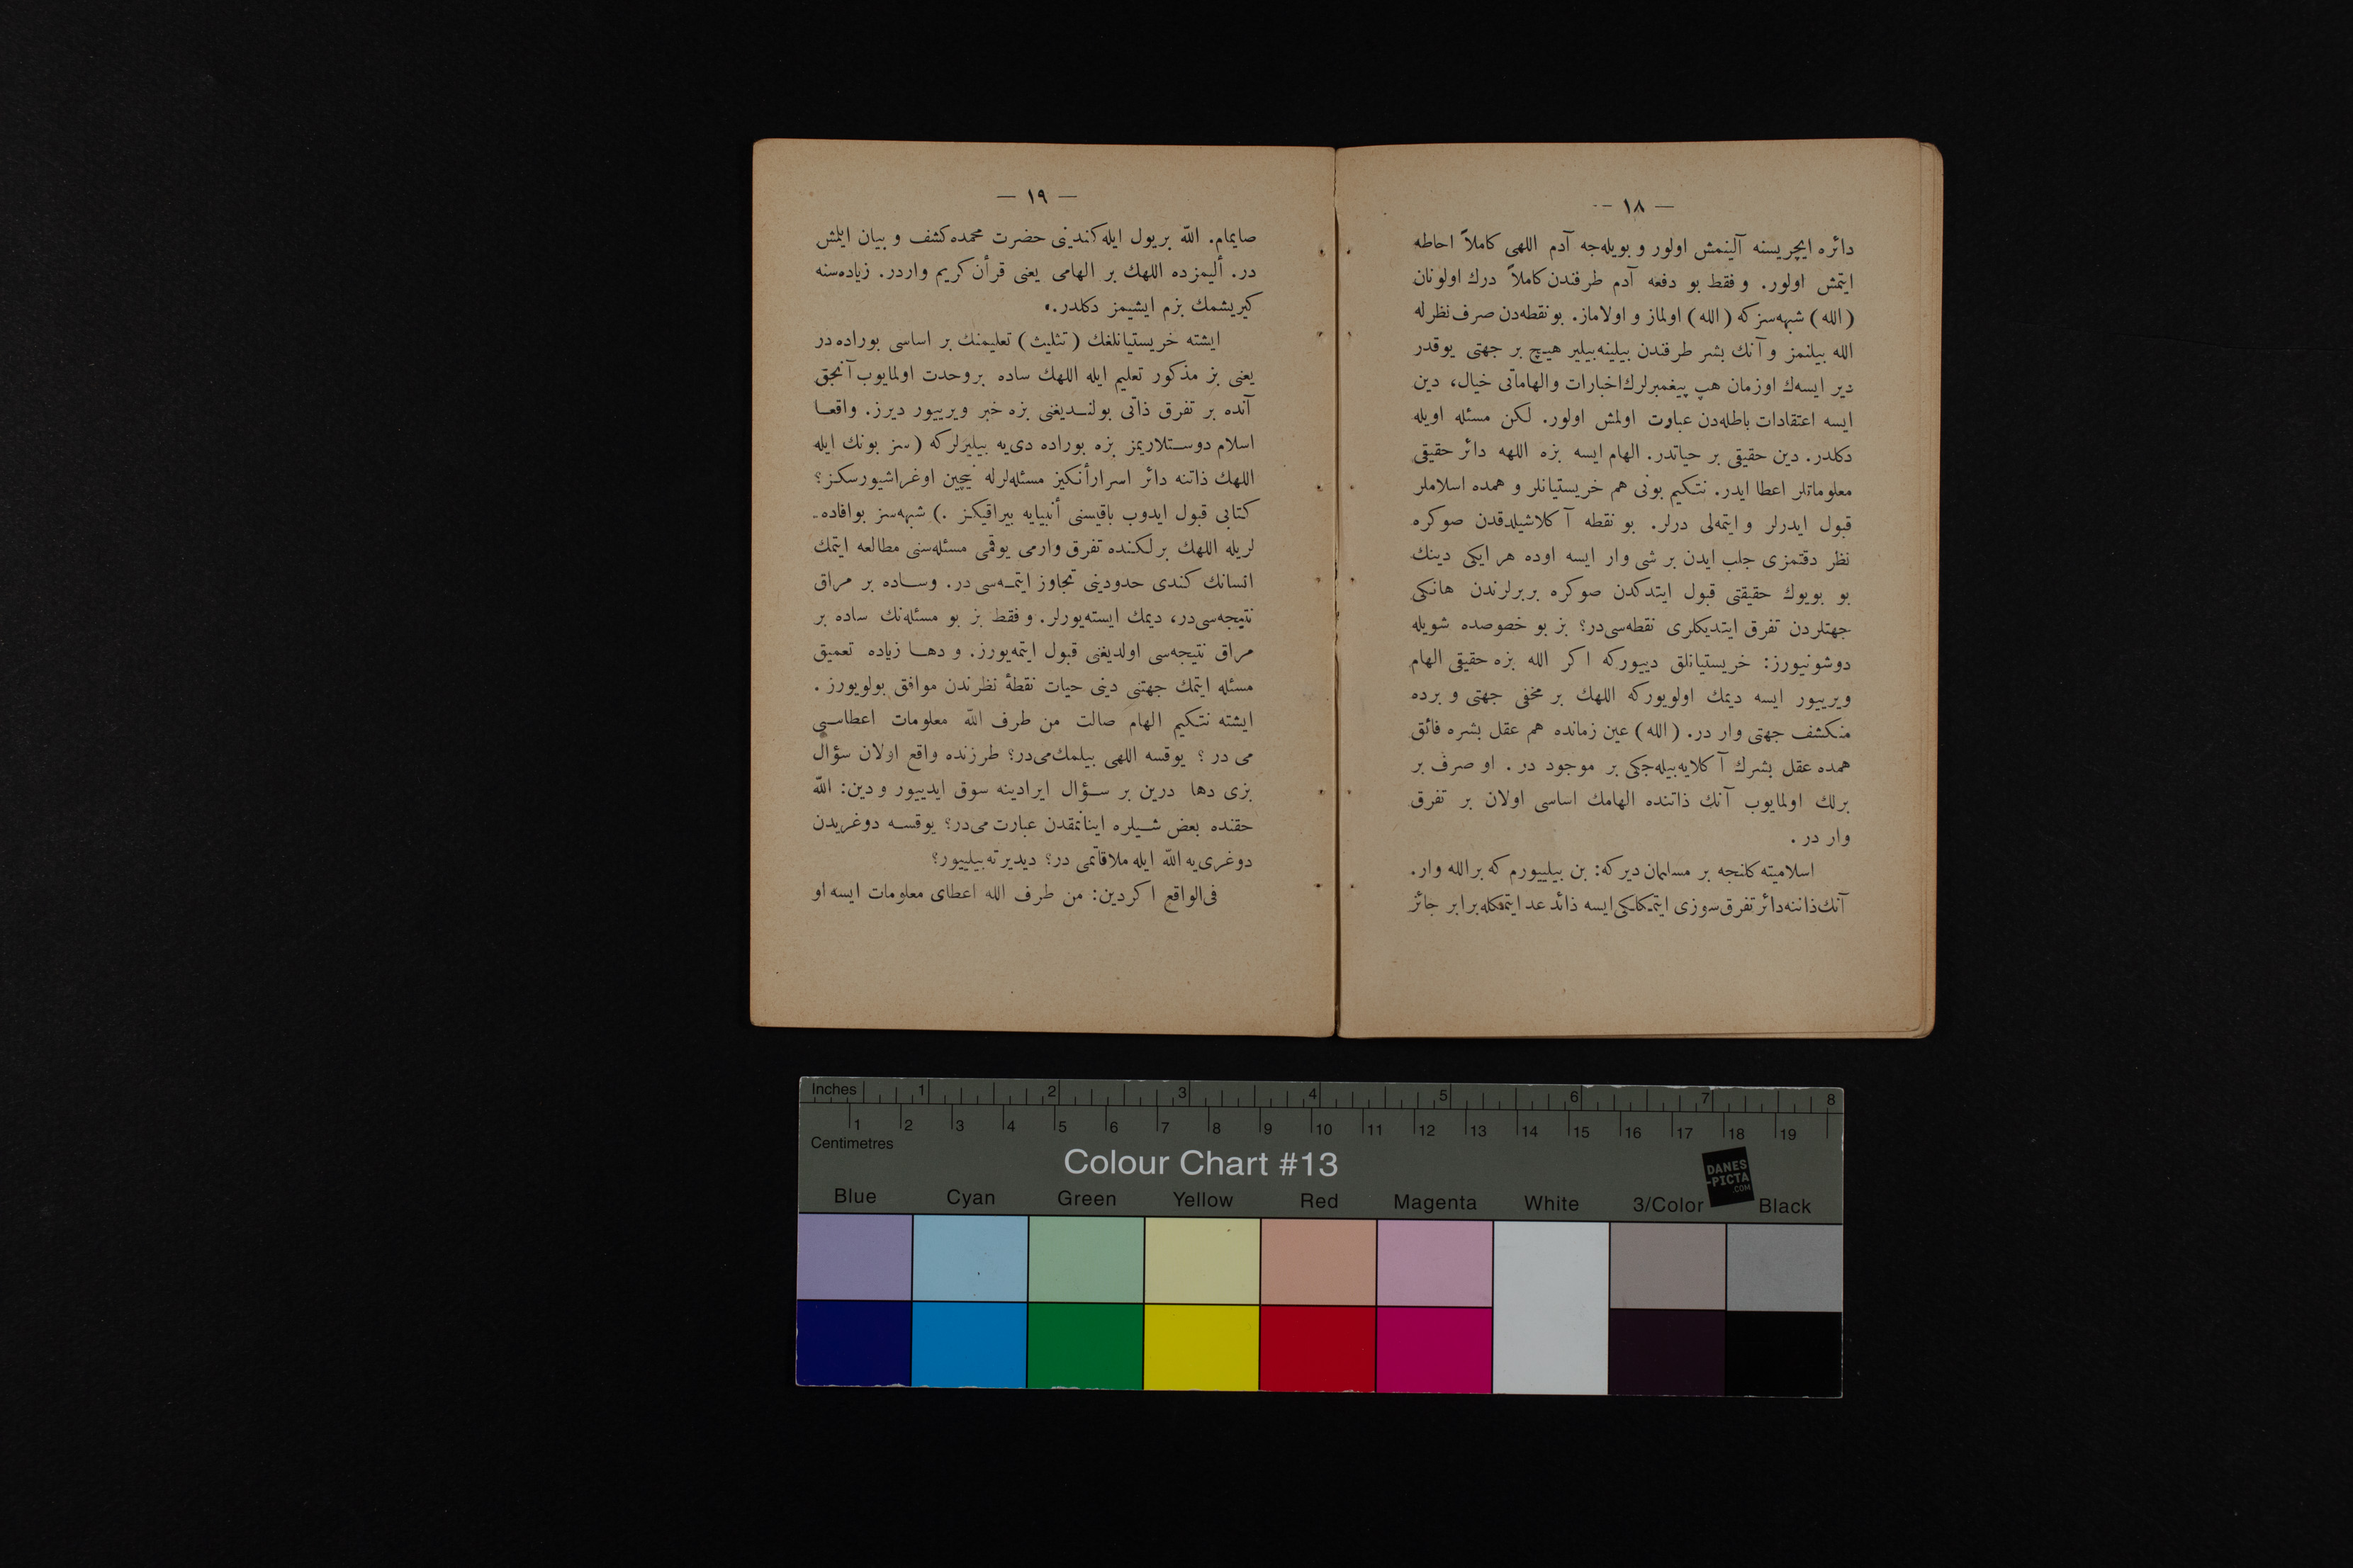 — ١٨ —
دائره ایچریسنه آلینمش اولور و بویله‌جه آدم اللهی کاملاً احاطه
ایتمش اولور. و فقط بو دفعه آدم طرفندن کاملاً درك اولونان
(الله) شبهه‌سز که (الله) اولماز و اولاماز. بو نقطه‌دن صرف نظرله
الله بیلنمز و آنك بشر طرفندن بیلینه‌بیلیر هیچ بر جهتی یوقدر
دیر ایسه‌ك اوزمان هپ پیغمبرلرك اخبارات والهاماتی خیال، دین
ایسه اعتقادات باطله‌دن عبارت اولمش اولور. لکن مسئله اویله
دکلدر. دین حقیقی بر حیاتدر. الهام ایسه بزه اللهه دائر حقیقی
معلوماتلر اعطا ایدر. نتکیم بونی هم خریستیانلر و همده اسلاملر
قبول ایدرلر و ایتمه‌لی درلر. بو نقطه آکلاشیلدقدن صوکره
نظر دقتمزی جلب ایدن بر شی وار ایسه اوده هر ایکی دینك
بو بویوك حقیقتی قبول ایتدکدن صوکره بربرلرندن هانکی
جهتلردن تفرق ایتدیکلری نقطه‌سی‌در؟ بز بو خصوصده شویله
دوشونیورز: خریستیانلق دییورکه اکر الله بزه حقیقی الهام
ویرییور ایسه دیمك اولویورکه اللهك بر مخفی جهتی و برده
منکشف جهتی وار در. (الله) عین زمانده هم عقل بشره فائق
همده عقل بشرك آکلایه‌بیله‌جکی بر موجود در. او صرف بر
برلك اولمایوب آنك ذاتنده الهامك اساسی اولان بر تفرق
وار در.
اسلامیته کلنجه بر مسلمان دیر که: بن بیلییورم که بر الله وار.
آنك ذاتنه دائر تفرق سوزی ایتمکلکی ایسه ذائد عد ایتمکله برابر جائز
— ١٩ —
صایمام. الله بریول ایله کندینی حضرت محمده کشف و بیان ایلمش
در. ألیمزده اللهك بر الهامی یعنی قرأن کریم واردر. زیاده‌سنه
کیریشمك بزم ایشیمز دکلدر.»
ایشته خریستیانلغك (تثلیث) تعلیمنك بر اساسی بوراده در
یعنی بز مذکور تعلیم ایله اللهك ساده بروحدت اولمایوب آنجق
آنده بر تفرق ذاتی بولندیغنی بزه خبر ویرییور دیرز. واقعا
اسلام دوستلاریمز بزه بوراده دی‌یه بیلیرلر که (سز بونك ایله
اللهك ذاتنه دائر اسرارأنکیز مسئله‌لرله نیچین اوغراشیورسکز؟
کتابی قبول ایدوب باقیسنی أنبیایه بیراقیکز.) شبهه‌سز بوافاده‌-
لریله اللهك برلکنده تفرق وارمی یوقمی مسئله‌سنی مطالعه ایتمك
انسانك کندی حدودینی تجاوز ایتمه‌سی در. وساده بر مراق
نتیجه‌سی‌در، دیمك ایسته‌یورلر. و فقط بز بو مسئله‌نك ساده بر
مراق نتیجه‌سی اولدیغنی قبول ایتمه‌یورز. و دها زیاده تعمیق
مسئله ایتمك جهتنی دینی حیات نقطهٔ نظرندن موافق بولویورز.
ایشته نتکیم الهام صالت من طرف الله معلومات اعطاسی
می در؟ یوقسه اللهی بیلمك‌می‌در؟ طرزنده واقع اولان سؤال
بزی دها درین بر سؤال ایرادینه سوق ایدییور و دین: الله
حقنده بعض شیلره اینانمقدن عبارت می‌در؟ یوقسه دوغریدن
دوغری‌یه الله ایله ملاقاتمی در؟ دیدیرته‌بیلییور؟
فی‌الواقع اکر دین: من طرف الله اعطای معلومات ایسه او
Inches 1 2 3 4 5 6 7 8
1 2 3 4 5 6 7 8 9 10 11 12 13 14 15 16 17 18 19
Centimetres
Colour Chart #13
DANES
-PICTA
.COM
Blue Cyan Green Yellow Red Magenta White 3/Color Black